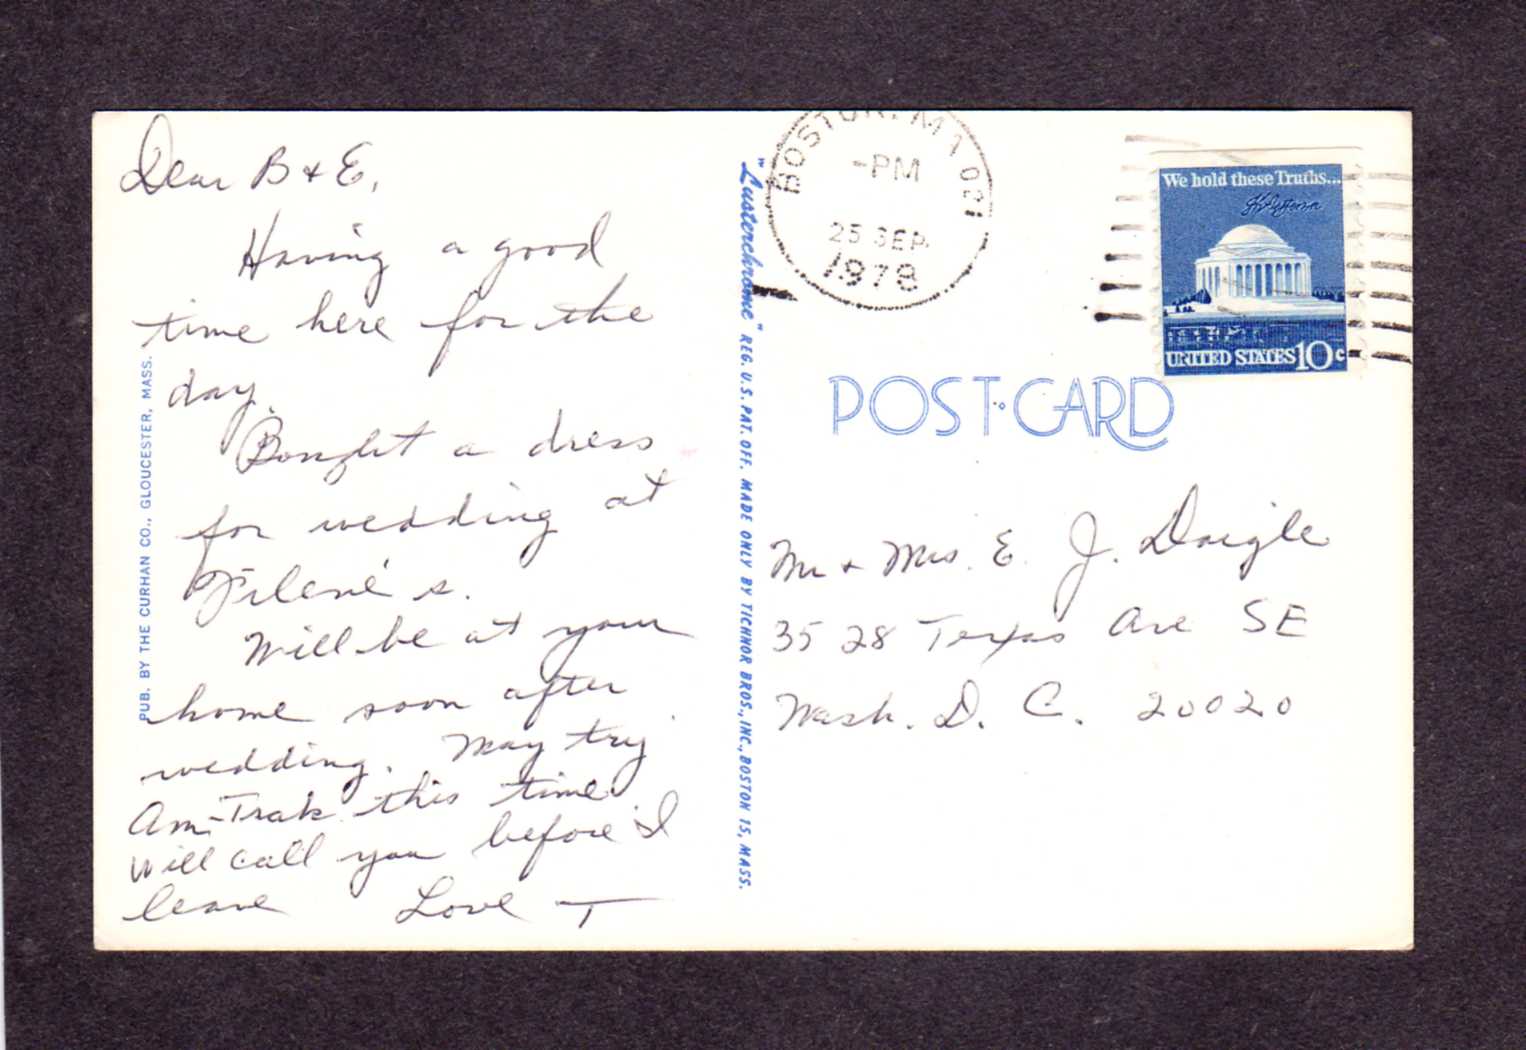 Dear B & E,
Having a good
time here for the
day.
Bought a dress
for wedding at
Filene's.
Will be at your
home soon after
wedding. May try
Am-Trak this time.
Will call you before I
leave Love T
PUB. BY THE CURHAN CO., GLOUCESTER, MASS.
"Lusterchrome" REG. U.S. PAT. OFF. MADE ONLY BY TICHNOR BROS., INC., BOSTON 15, MASS.
BOSTON, MA 021
-PM
25 SEP
1978
We hold these Truths...
Th Jefferson
UNITED STATES 10c
POST CARD
Mr & Mrs. E. J. Daigle
3528 Texas Ave SE
Wash. D. C. 20020